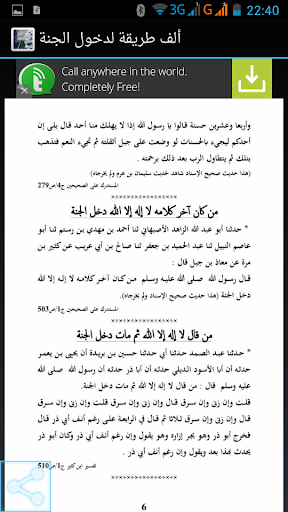 3G G 22:40
ألف طريقة لدخول الجنة
Call anywhere in the world.
Completely Free!
وأربعا وعشرين حسنة قالوا يا رسول الله إذا لا يهلك منا أحد قال بلى إن
أحدكم ليجيء بالحسنات لو وضعت على جبل أثقلته ثم تجيء النعم فتذهب
بتلك ثم يتطاول الرب بعد ذلك برحمته .
(هذا حديث صحيح الإسناد شاهد لحديث سليمان بن هرم ولم يخرجاه)
المستدرك على الصحيحين ج4/ص279
********************
من كان آخر كلامه لا إله إلا الله دخل الجنة
* حدثنا أبو عبد الله الزاهد الأصبهاني ثنا أحمد بن مهدي بن رستم ثنا أبو
عاصم النبيل ثنا عبد الحميد بن جعفر ثنا صالح بن أبي عريب عن كثير بن
مرة عن معاذ بن جبل قال:
قال رسول الله صلى الله عليه وسلم من كان آخر كلامه لا إله إلا الله
دخل الجنة (هذا حديث صحيح الإسناد ولم يخرجاه)
المستدرك على الصحيحين ج1/ص503
********************
من قال لا إله إلا الله ثم مات دخل الجنة
* حدثنا عبد الصمد حدثني أبي حدثنا حسين بن بريدة أن يحيى بن يعمر
حدثه أن أبا الأسود الديلي حدثه أن أبا ذر حدثه أن رسول الله صلى الله
عليه وسلم قال : من قال لا إله إلا الله ثم مات دخل الجنة.
قلت وإن زنى وإن سرق قال وإن زنى وإن سرق قلت وإن زنى وإن سرق
قال وإن زنى وإن سرق ثلاثا ثم قال في الرابعة على رغم أنف أبي ذر قال
فخرج أبو ذر وهو يجر إزاره وهو يقول وإن رغم أنف أبي ذر وكان أبو ذر
يحدث بهذا بعد ويقول وإن رغم أنف أبي ذر .
تفسير ابن كثير ج1/ص510
********************
6